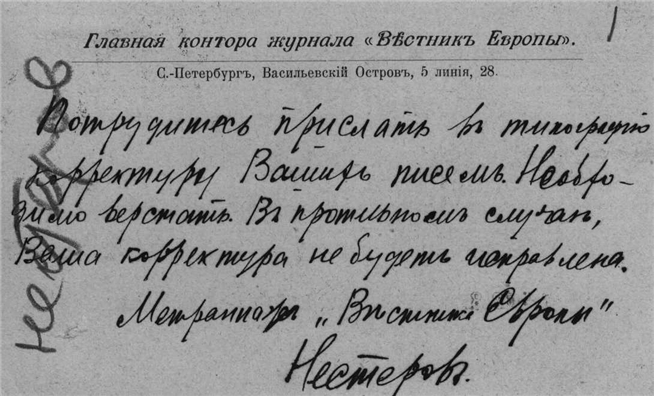 Главная контора журнала «Вѣстникъ Европы».
С.-Петербургъ, Васильевскій Островъ, 5 линія, 28.
Потрудитесь прислать въ типографію
корректуру Вашихъ писемъ. Необхо-
димо верстать. Въ противномъ случаѣ,
Ваша корректура не будетъ исправлена.
Метранпажъ „Вѣстника Европы"
Нестеровъ.